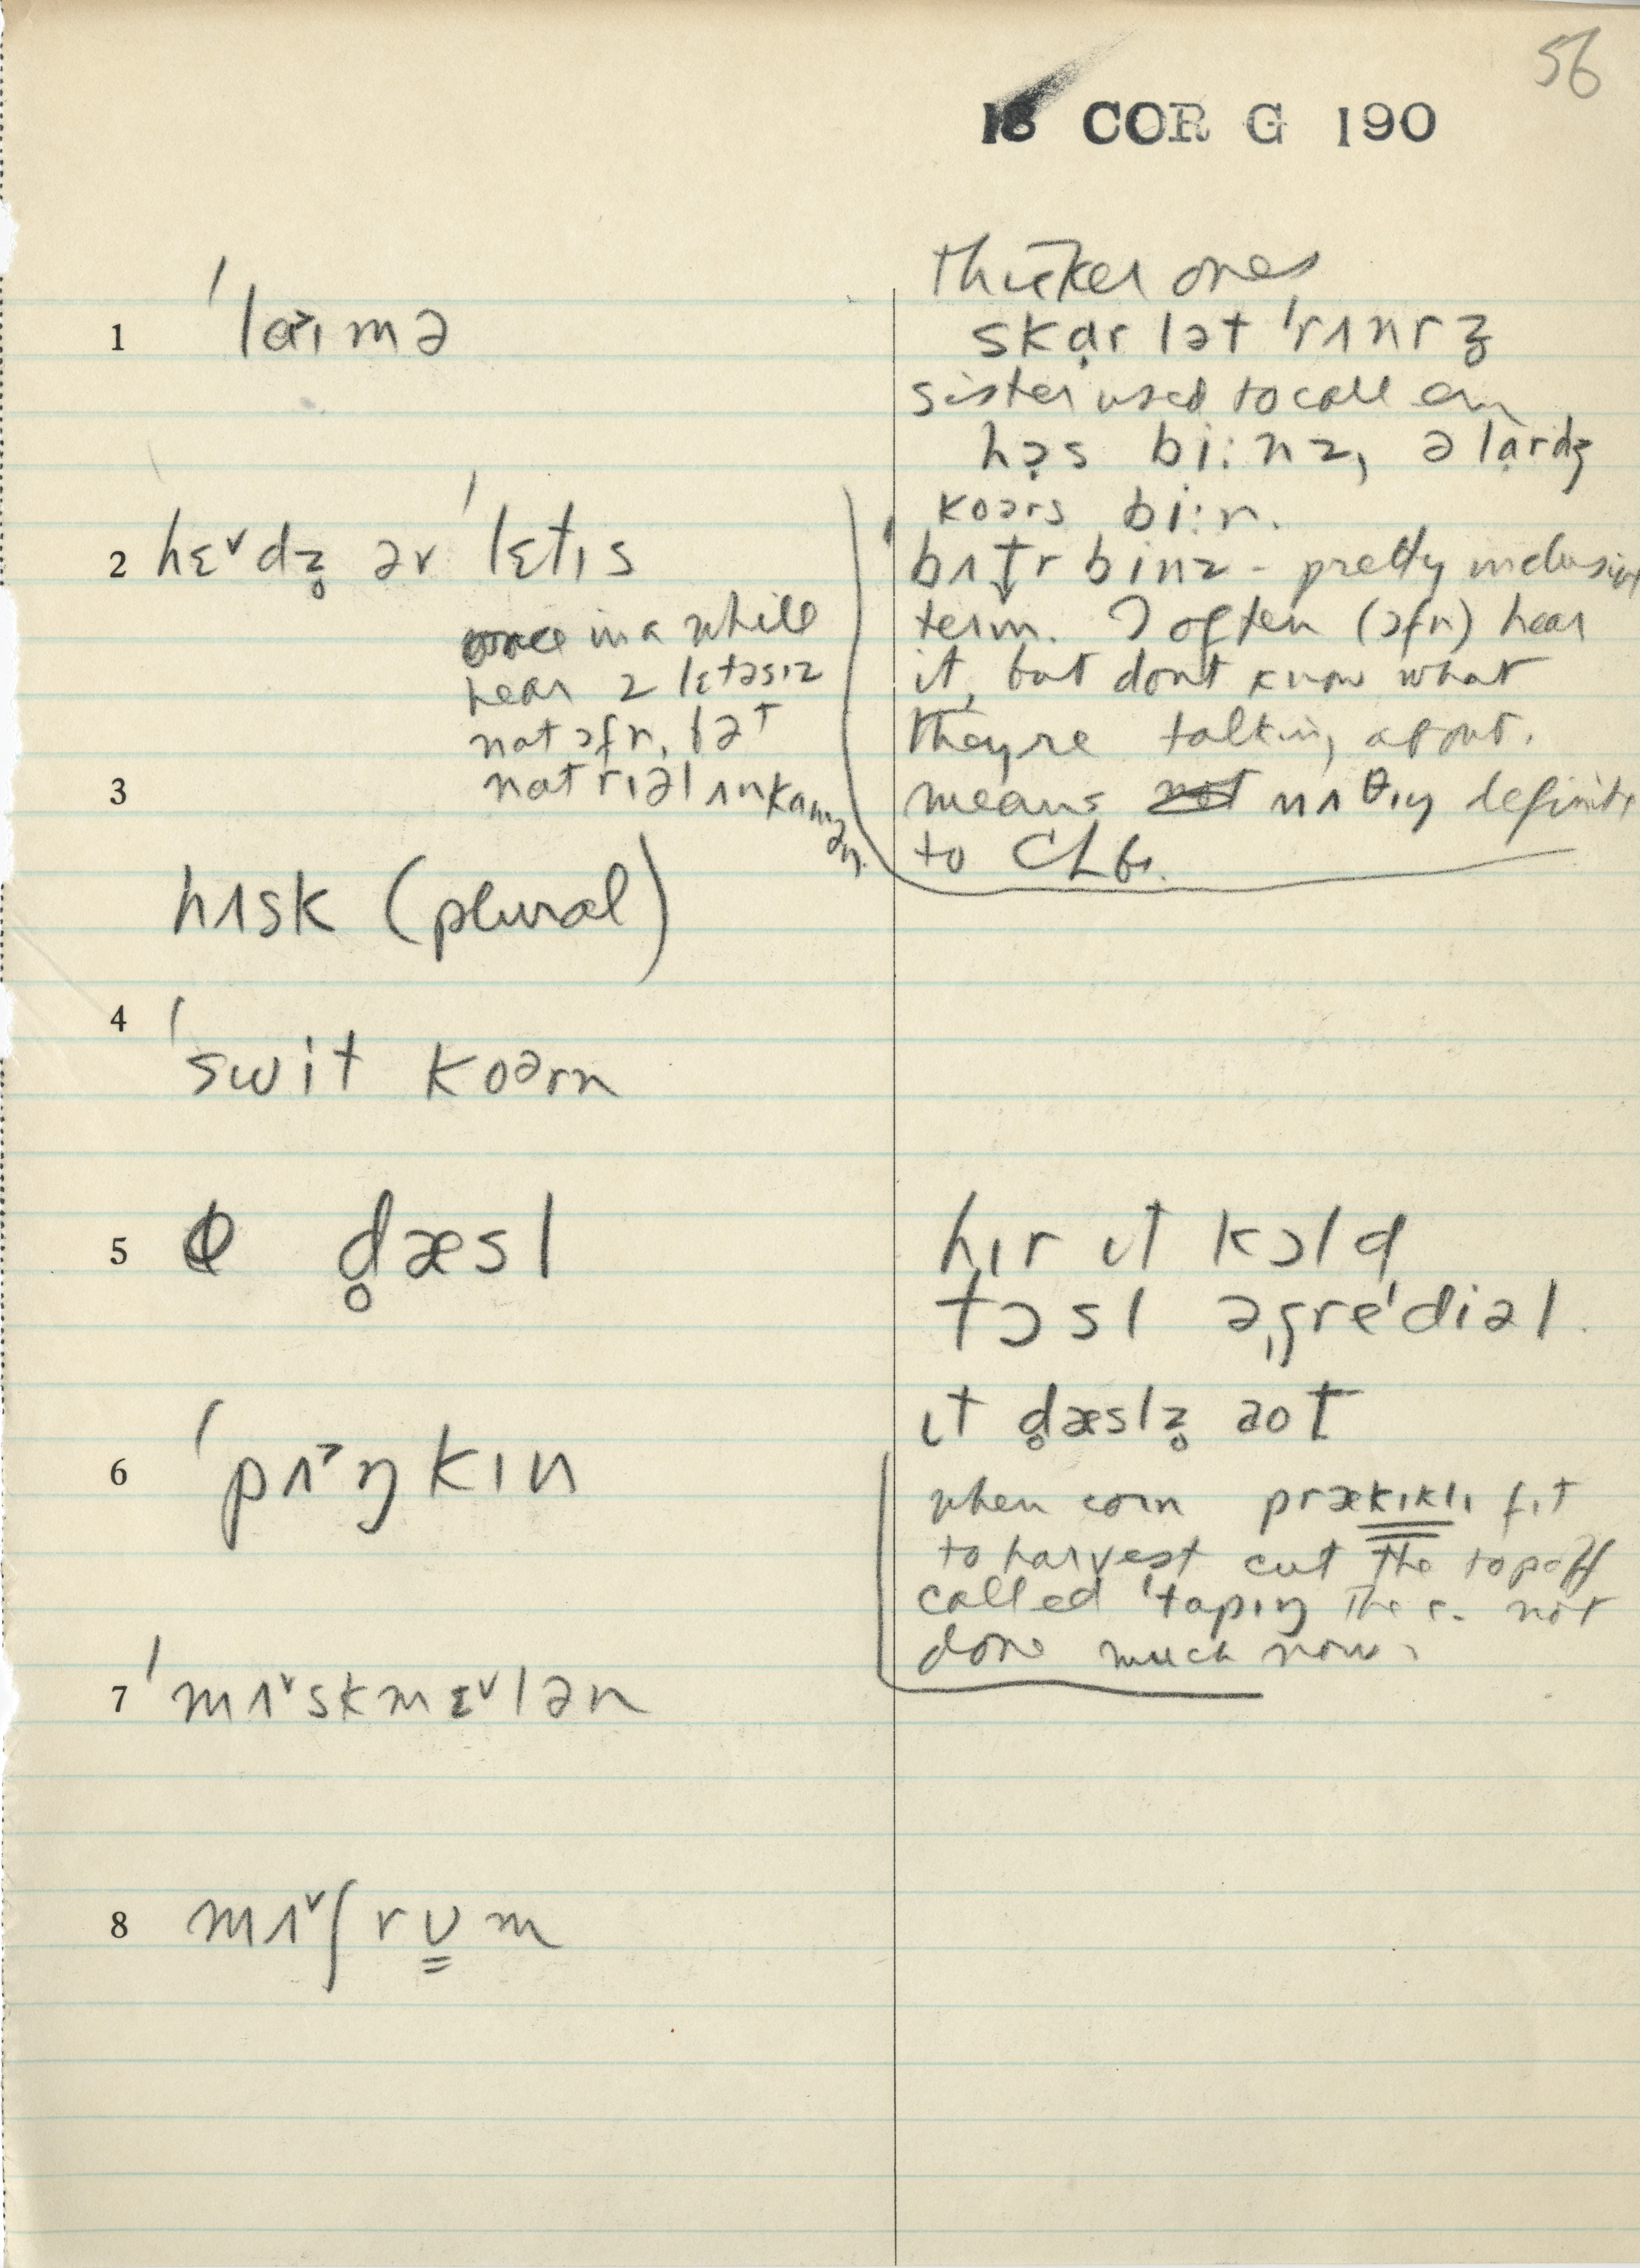 56
18 COR G 190
1 ˈlɑ˃ɪmə
2 hɛ˅dz̥ əv ˈlɛt̬ɪs
once in a while
hear 2 lɛtəsɪz
not ɔfn, bət
not rɪəl ʌnkɑmən.
3
hʌsk (plural)
4 ˈswit koərn
5 d̥æsl
6 ˈpʌ˃ŋkɪn
7 ˈmʌ˅skmɛ˅lən
8 mʌ˅ʃrʊm
thicker ones
skɑ̣rlət ˈrʌnrz̥
sister used to call em
hɔ̣s bi:nz, ə lɑrdʒ
koərs bi:n.
bʌt̬r binz - pretty inclusive
term. I often (ɔfn) hear
it, but dont know what
they're talking about.
means nʌθɪŋ definite
to CLG.
hɪr ɪt kɔld
tɔsl əˌgreˈdiəl.
ɪt d̥æslz̥ aot
when corn prækɪklɪ fit
to harvest cut the top off
called ˈtɑpɪŋ the c. not
done much now.